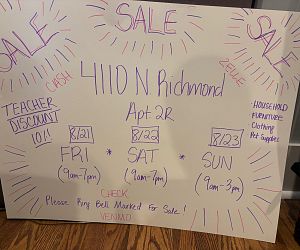 SALE
SALE
SALE
CASH
ZELLE
4110 N Richmond
Apt 2R
TEACHER
DISCOUNT
10%
HOUSEHOLD
FURNITURE
Clothing
Pet Supplies
8/21 8/22 8/23
FRI * SAT * SUN
(9am-7pm) (9am-7pm) (9am-3pm)
CHECK
Please Ring Bell Marked For Sale!
VENMO